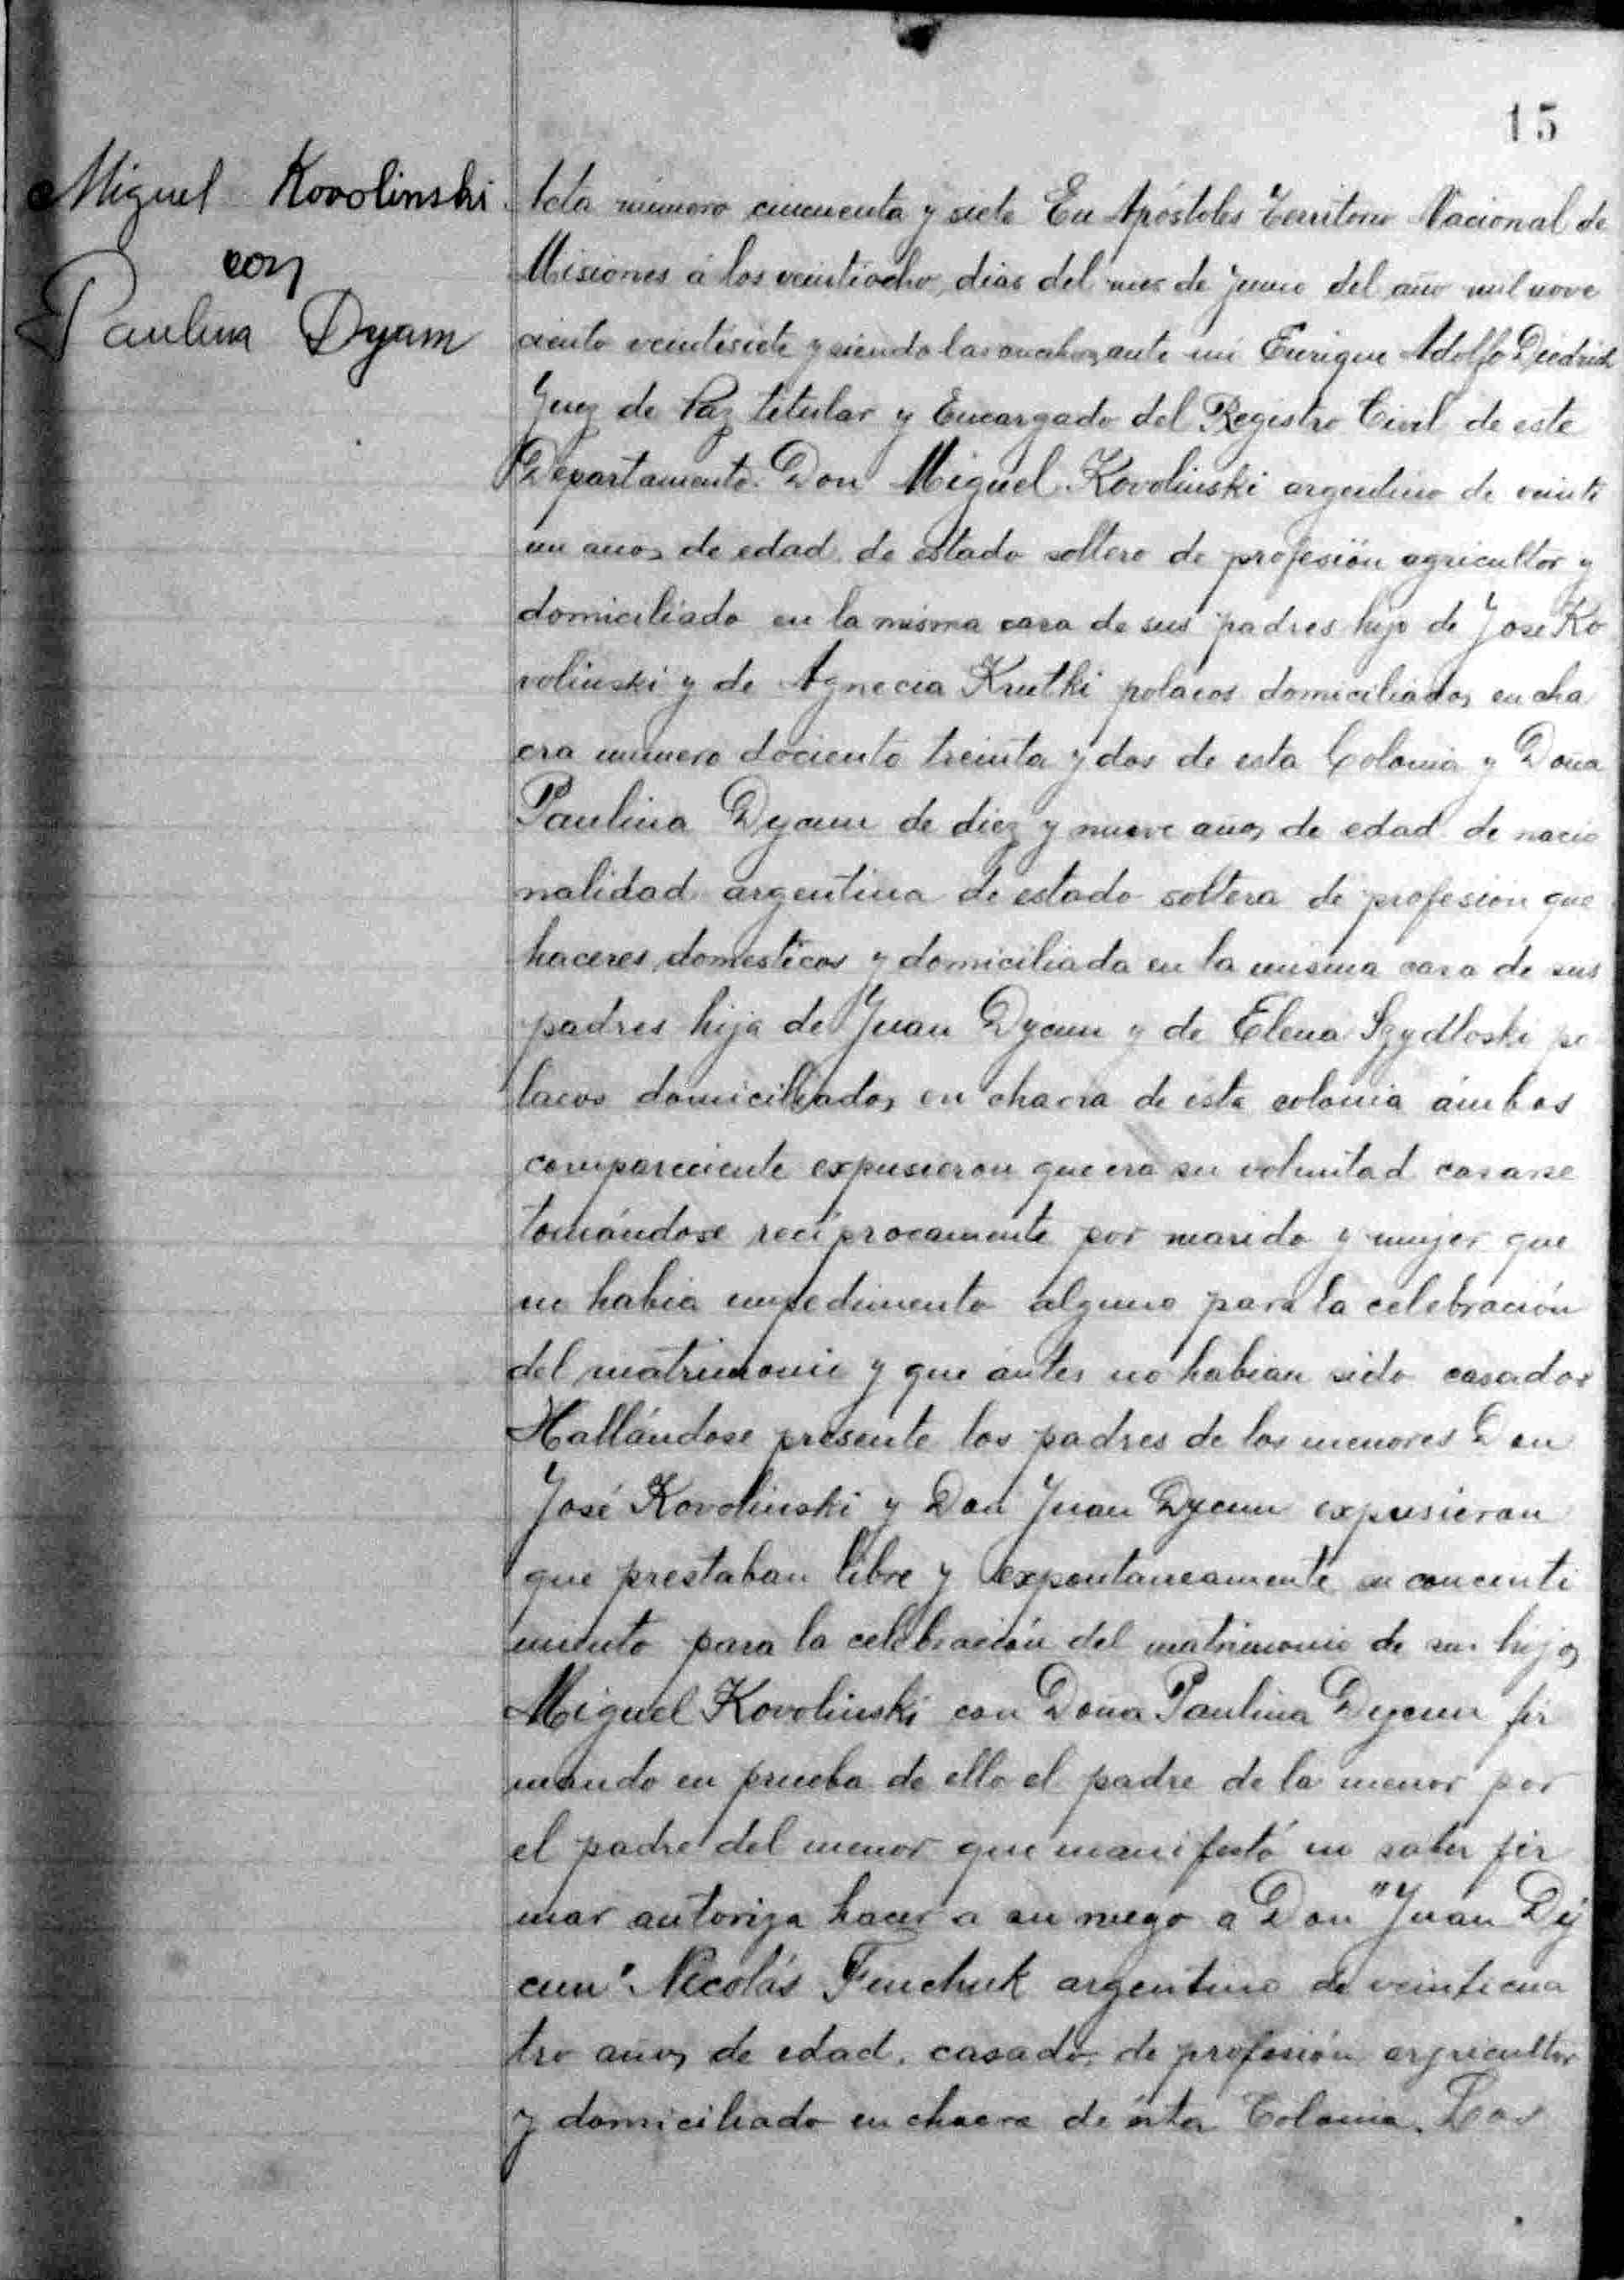 15
Miguel Kovolinski
con
Paulina Dycun
Acta número cincuenta y siete En Apóstoles Territorio Nacional de
Misiones á los veintiocho dias del mes de Junio del año mil nove
ciento veintisiete y siendo las ante mi Enrique Adolfo Diedrich
Juez de Paz titular y Encargado del Registro Civil de este
Departamento. Don Miguel Kovolinski argentino de veinte
un años de edad de estado soltero de profesión agricultor y
domiciliado en la misma casa de sus padres hijo de José Ko
volinski y de Agnecia Krutki polacos domiciliados en cha
cra numero dociento treinta y dos de esta Colonia y Doña
Paulina Dycun de diez y nueve años de edad de nacio
nalidad argentina de estado soltera de profesion que
haceres domesticos y domiciliada en la misma casa de sus
padres hija de Juan Dycun y de Elena Szydloski po
lacos domiciliados en chacra de esta colonia ámbos
compareciente expusieron que era su voluntad casarse
tomándose recíprocamente por marido y mujer que
no habia impedimento alguno para la celebración
del matrimonio y que ántes no habian sido casados
Hallándose presente los padres de los menores Don
José Kovolinski y Don Juan Dycun expusieron
que prestaban libre y expontaneamente su concenti
miento para la celebración del matrimonio de sus hijos
Miguel Kovolinski con Doña Paulina Dycun fir
mando en prueba de ello el padre de la menor por
el padre del menor que manifestó no saber fir
mar autoriza hacer a su ruego a Don "Juan Dy
cun" Nicolás Fenchuk argentino de veinticua
tro años de edad. casado, de profesión agricultor
y domiciliado en chacra de ésta Colonia. Los